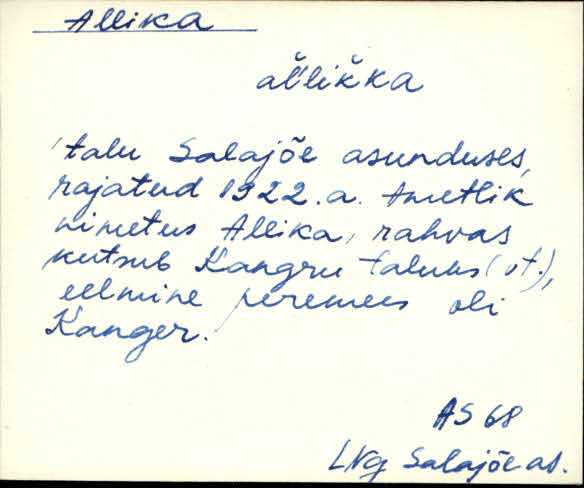 Allika
al̆'lik̆ka
'talu Salajõe asunduses,
rajatud 1922.a. Ametlik
nimetus Allika, rahvas
kutsub Kangru taluks (vt.),
eelmine peremees oli
Kanger.
AS 68
LNg Salajõe as.